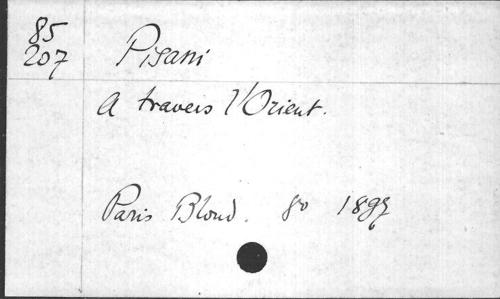 85
207
Pisani
A travers l'Orient.
Paris Bloud. 8° 1897